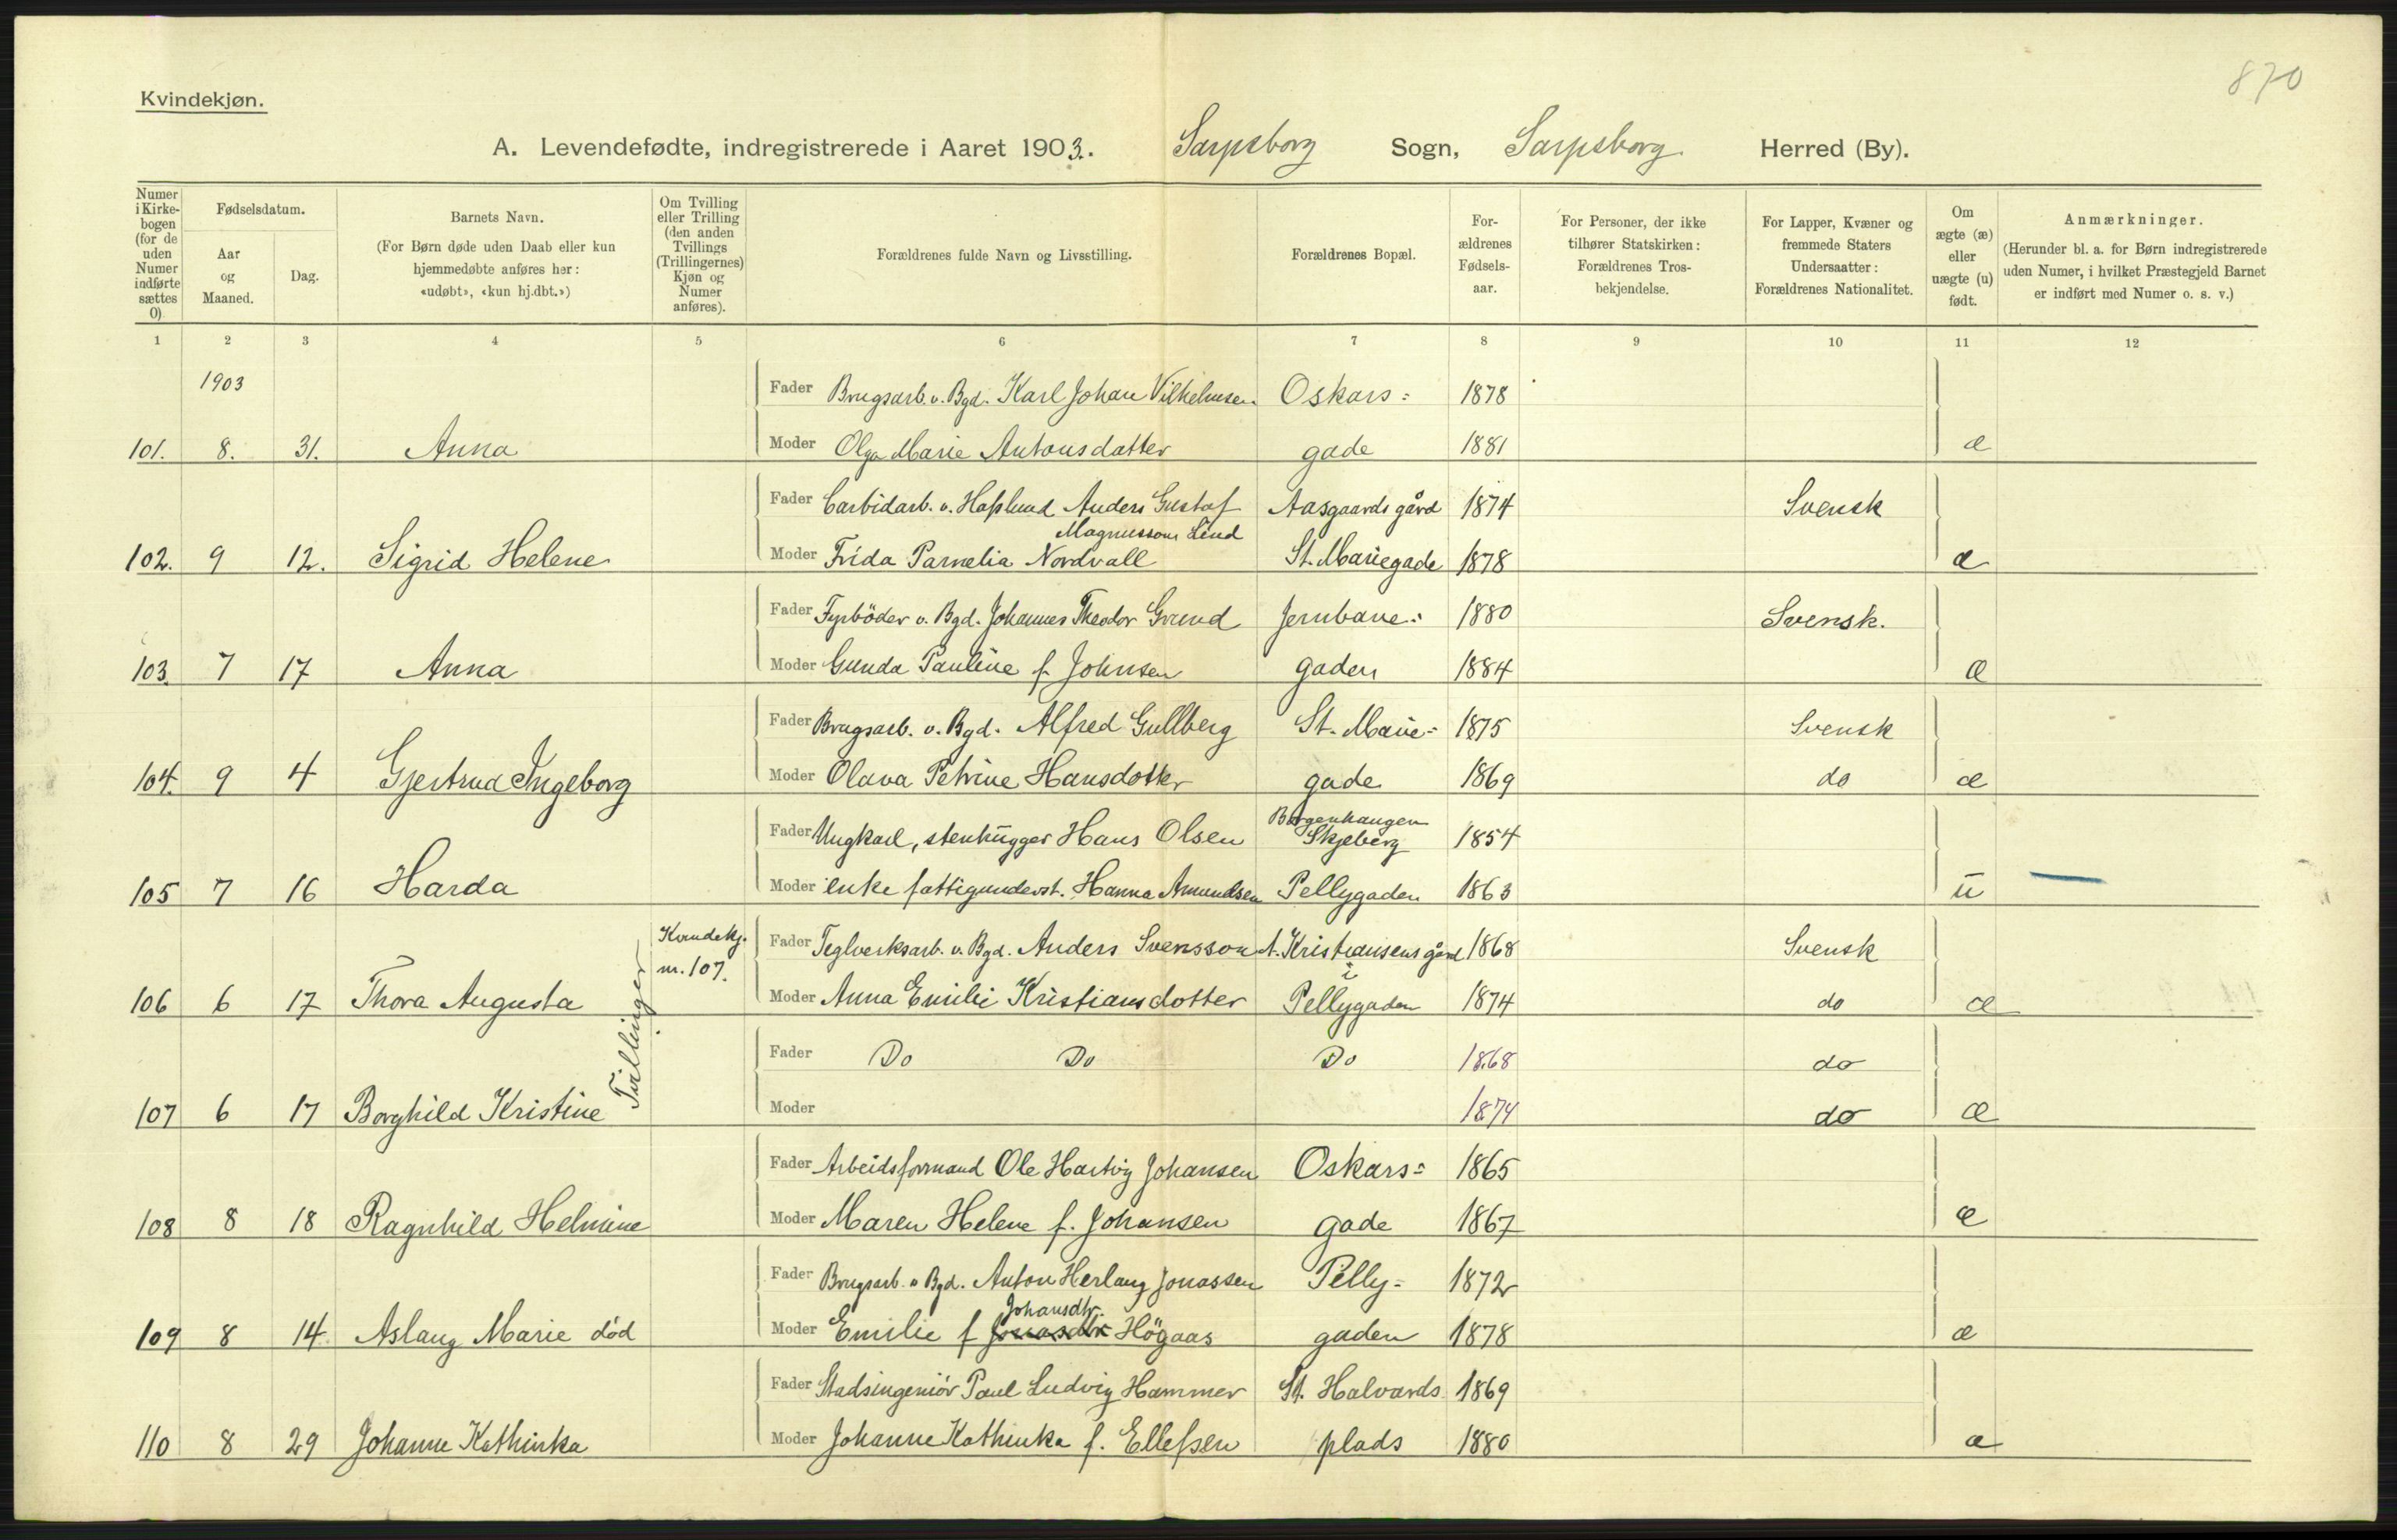 870
Kvindekjøn.
A. Levendefødte, indregistrerede i Aaret 1903. Sarpsborg Sogn, Sarpsborg Herred (By).
Numer i Kirkebogen (for de uden Numer indførte sættes 0)
Fødselsdatum.
Aar og Maaned.
Dag.
Barnets Navn.
(For Børn døde uden Daab eller kun hjemmedøbte anføres her: «udøbt», «kun hj.dbt.»)
Om Tvilling eller Trilling (den anden Tvillings (Trillingernes) Kjøn og Numer anføres).
Forældrenes fulde Navn og Livsstilling.
Forældrenes Bopæl.
Forældrenes Fødselsaar.
For Personer, der ikke tilhører Statskirken: Forældrenes Trosbekjendelse.
For Lapper, Kvæner og fremmede Staters Undersaatter: Forældrenes Nationalitet.
Om ægte (æ) eller uægte (u) født.
Anmærkninger.
(Herunder bl. a. for Børn indregistrerede uden Numer, i hvilket Præstegjeld Barnet er indført med Numer o. s. v.)
1 2 3 4 5 6 7 8 9 10 11 12
1903
Fader Brugsarb. v. Bgd. Karl Johan Vilhelmsen Oskars= 1878
101. 8. 31. Anna Moder Olga Marie Antonsdatter gade 1881 æ
Fader Carbidarb. v. Hafslund Anders Gustaf Aasgaards gård 1874 Svensk
Magnusson Lind
102. 9 12. Sigrid Helene Moder Frida Parnelia Nordvall St. Mariegade 1878 æ
Fader Fyrböder v. Bgd. Johannes Theodor Grund Jernbane= 1880 Svensk.
103. 7 17 Anna Moder Gunda Pauline f. Johnsen gaden 1884 æ
Fader Brugsarb. v. Bgd. Alfred Gullberg St. Marie= 1875 Svensk
104. 9 4 Gjertrud Ingeborg Moder Olava Petrine Hansdotter gade 1869 do æ
Borgenhaugen
Fader Ungkarl, stenhugger Hans Olsen Skjeberg 1854
105 7 16 Harda Moder enke fattigunderst. Hanna Amundsen Pellygaden 1863 u
Kvindekj. Fader Teglverksarb. v. Bgd. Anders Svensson A. Kristiansens gård 1868 Svensk
nr. 107. i
106 6 17 Thora Augusta Moder Anna Emilie Kristiansdotter Pellygaden 1874 do æ
Tvillinger
Fader Do Do Do 1868 do
107 6 17 Borghild Kristine Moder 1874 do æ
Fader Arbeidsformand Ole Hartvig Johansen Oskars= 1865
108 8 18 Ragnhild Helmine Moder Maren Helene f. Johansen gade 1867 æ
Fader Brugsarb. v Bgd. Anton Herlaug Jonassen Pelly= 1872
Johansdtr.
109 8 14 Aslaug Marie död Moder Emilie f Jonasdtr Högaas gaden 1878 æ
Fader Stadsingeniör Paul Ludvig Hammer St. Halvards 1869
110 8 29 Johanne Kathinka Moder Johanne Kathinka f. Ellefsen plads 1880 æ